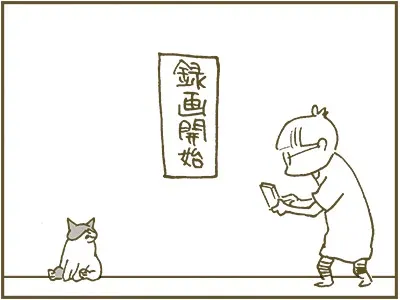 録画開始